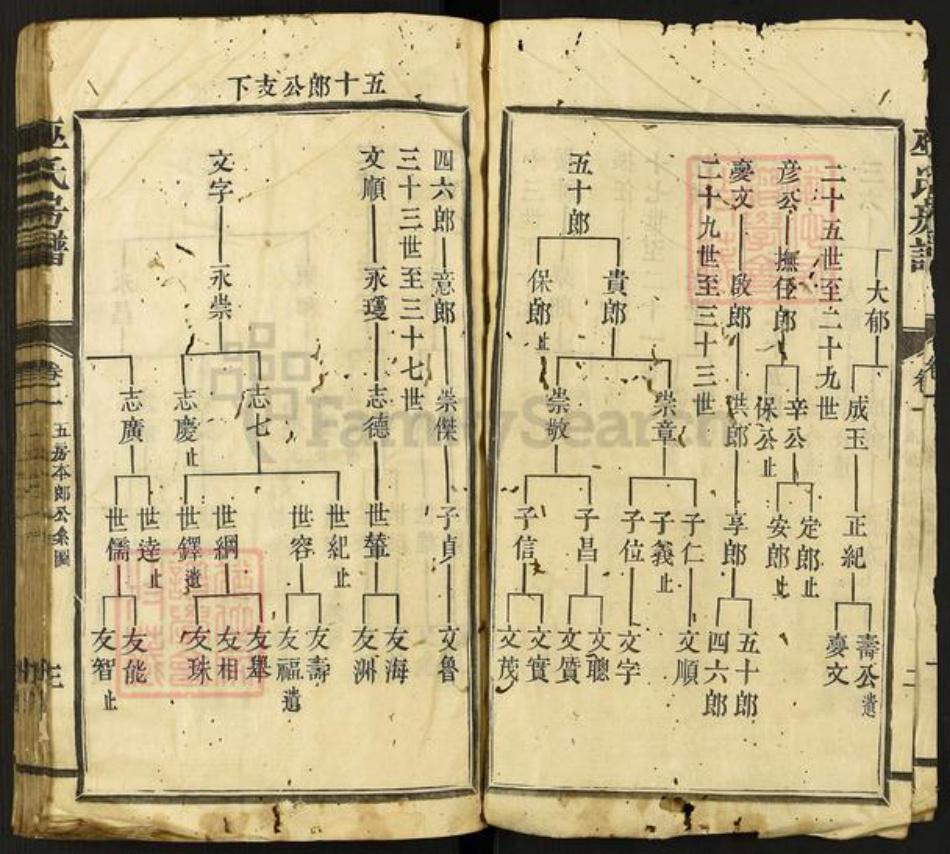 大郁
成玉
正紀
壽公遺
慶文
二十五世至二十九世
彦公
撫任郎
辛公
保公止
定郎止
安郎止
慶文
啟郎
洪郎
享郎
五十郎
四六郎
二十九世至三十三世
五十郎
貴郎
保郎止
崇章
崇敬
子仁
子義止
子位
子昌
子信
文順
文字
文聰
文質
文實
文茂
五十郎公支下
四六郎
意郎
崇傑
子貞
文魯
三十三世至三十七世
文順
永瓊
志德
世輦
友海
友洲
文字
永崇
志七
志慶止
志廣
世紀止
世容
世綱
世鐸遺
世逵止
世儒
友壽
友福遺
友舉
友相
友珠
友能
友智止
巫氏房譜
卷一
五房本郎公系圖
三
FamilySearch